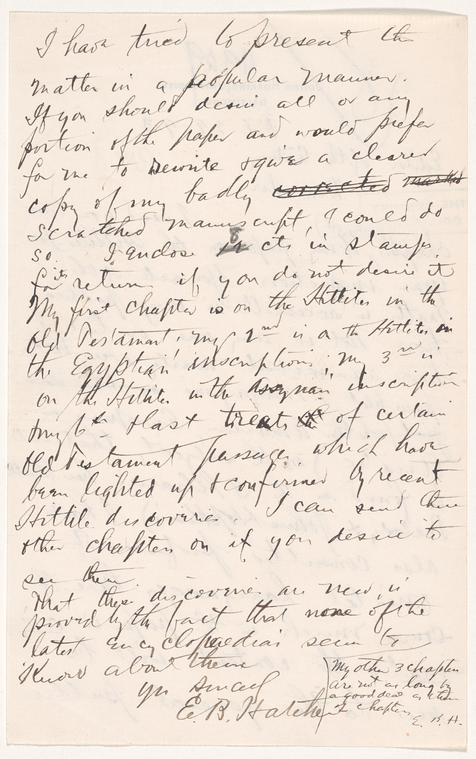 I have tried to present the
matter in a popular manner.
If you should desire all or any
portion of the paper and would prefer
for me to rewrite & give a clearer
copy of my badly corrected marked
scratched manuscript, I could do
so. I enclose cts in stamps
for its return if you do not desire it
My first chapter is on the Hittites in the
Old Testament; my 2nd is on the Hittites in
the Egyptian inscriptions; my 3rd is
on the Hittites in the Assyrian inscription
my 6th & last treats of certain
Old Testament passages which have
been lighted up & confirmed by recent
Hittite discoveries. I can send these
other chapters on if you desire to
see them.
That these discoveries are new, is
proved by the fact that none of the
latest encyclopaedias seem to
know about them
Yrs sincerely
E. B. Hatcher
My other 3 chapters
are not as long by
a good deal as these
2 chapters E. B. H.